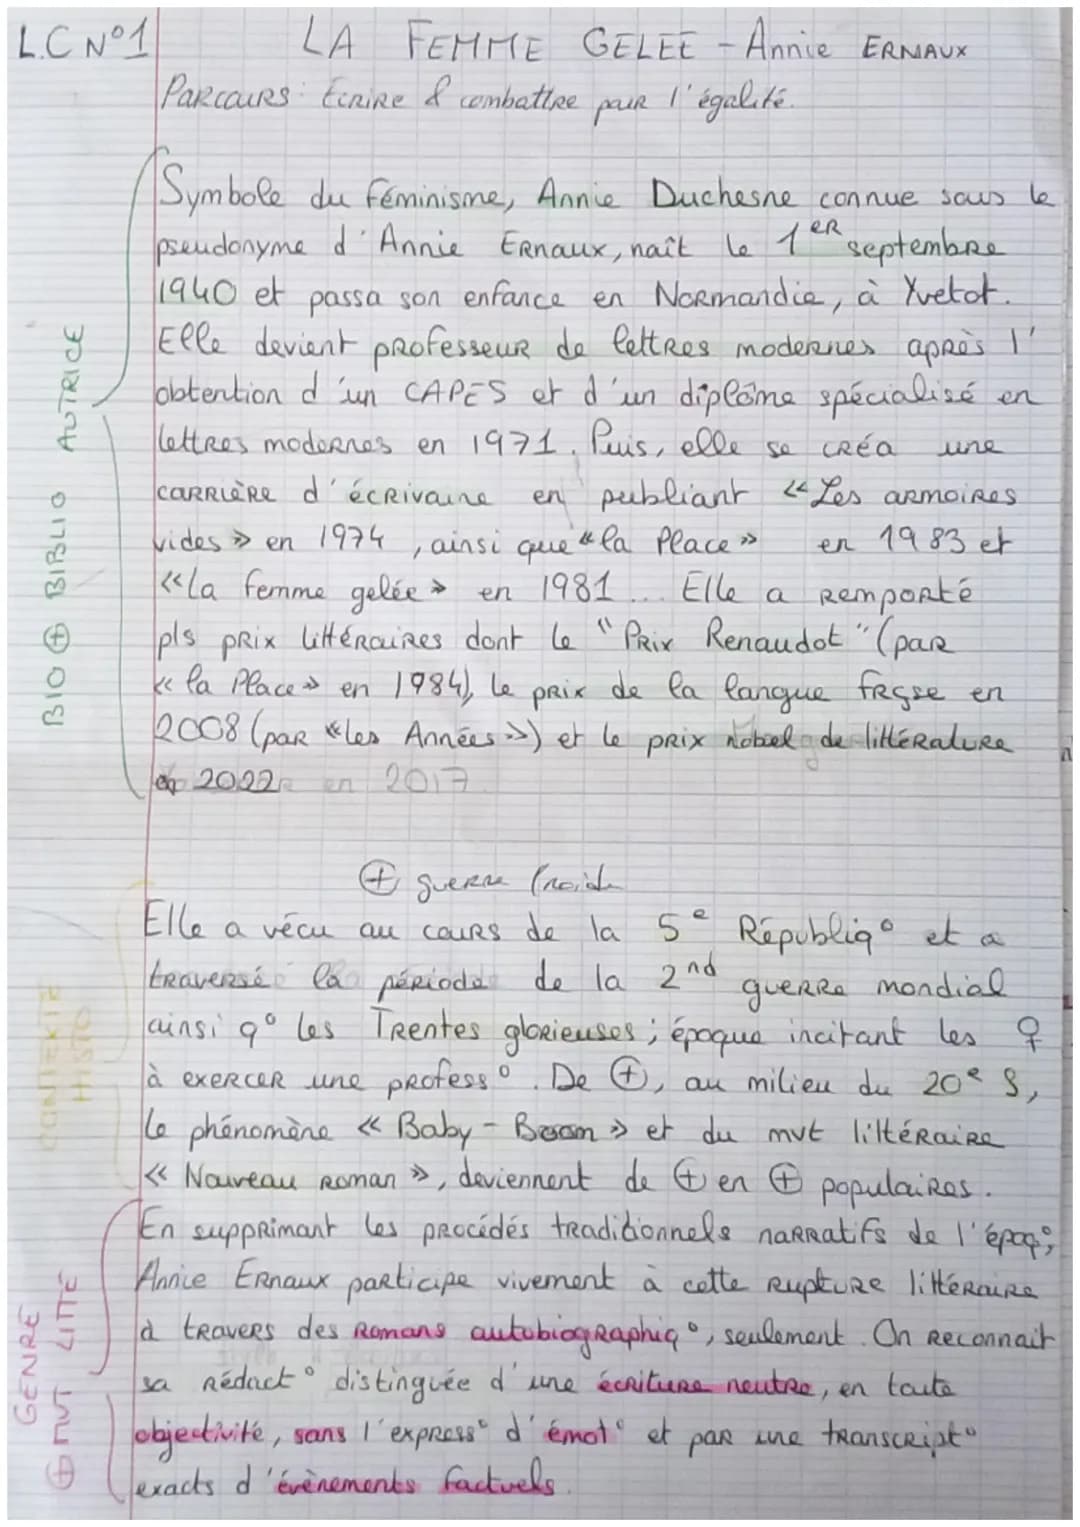 L.C N°1
LA FEMME GELEE - Annie ERNAUX
Parcours : Ecrire & combattre pour l'égalité.
Symbole du féminisme, Annie Duchesne connue sous le
pseudonyme d'Annie Ernaux, naît le 1er septembre
1940 et passa son enfance en Normandie, à Yvetot.
Elle devient professeur de lettres modernes après l'
obtention d'un CAPES et d'un diplôme spécialisé en
lettres modernes en 1971. Puis, elle se créa une
carrière d'écrivaine en publiant « Les armoires
vides » en 1974, ainsi que « la Place » en 1983 et
« La femme gelée » en 1981... Elle a remporté
pls prix littéraires dont le "Prix Renaudot" (par
« la Place » en 1984), le prix de la langue frçse en
2008 (par « les Années ») et le prix nobel de littérature
en 2022 en 2017
BIO ⊕ BIBLIO AUTRICE
⊕ guerre froide
Elle a vécu au cours de la 5e Républiq° et a
traversé la période de la 2nd guerre mondial
ainsi q° les Trentes glorieuses ; époque incitant les ♀
à exercer une profess°. De ⊕, au milieu du 20e S,
le phénomène « Baby-Boom » et du mvt littéraire
« Nouveau roman », deviennent de ⊕ en ⊕ populaires.
CONTEXTE
HISTO
En supprimant les procédés traditionnels narratifs de l'époq°,
Annie Ernaux participe vivement à cette rupture littéraire
à travers des romans autobiographiq°, seulement. On reconnait
sa rédact° distinguée d'une écriture neutre, en toute
objectivité, sans l'express° d'émot° et par une transcript°
exacts d'évènements factuels.
GENRE
⊕ MVT LITTÉ